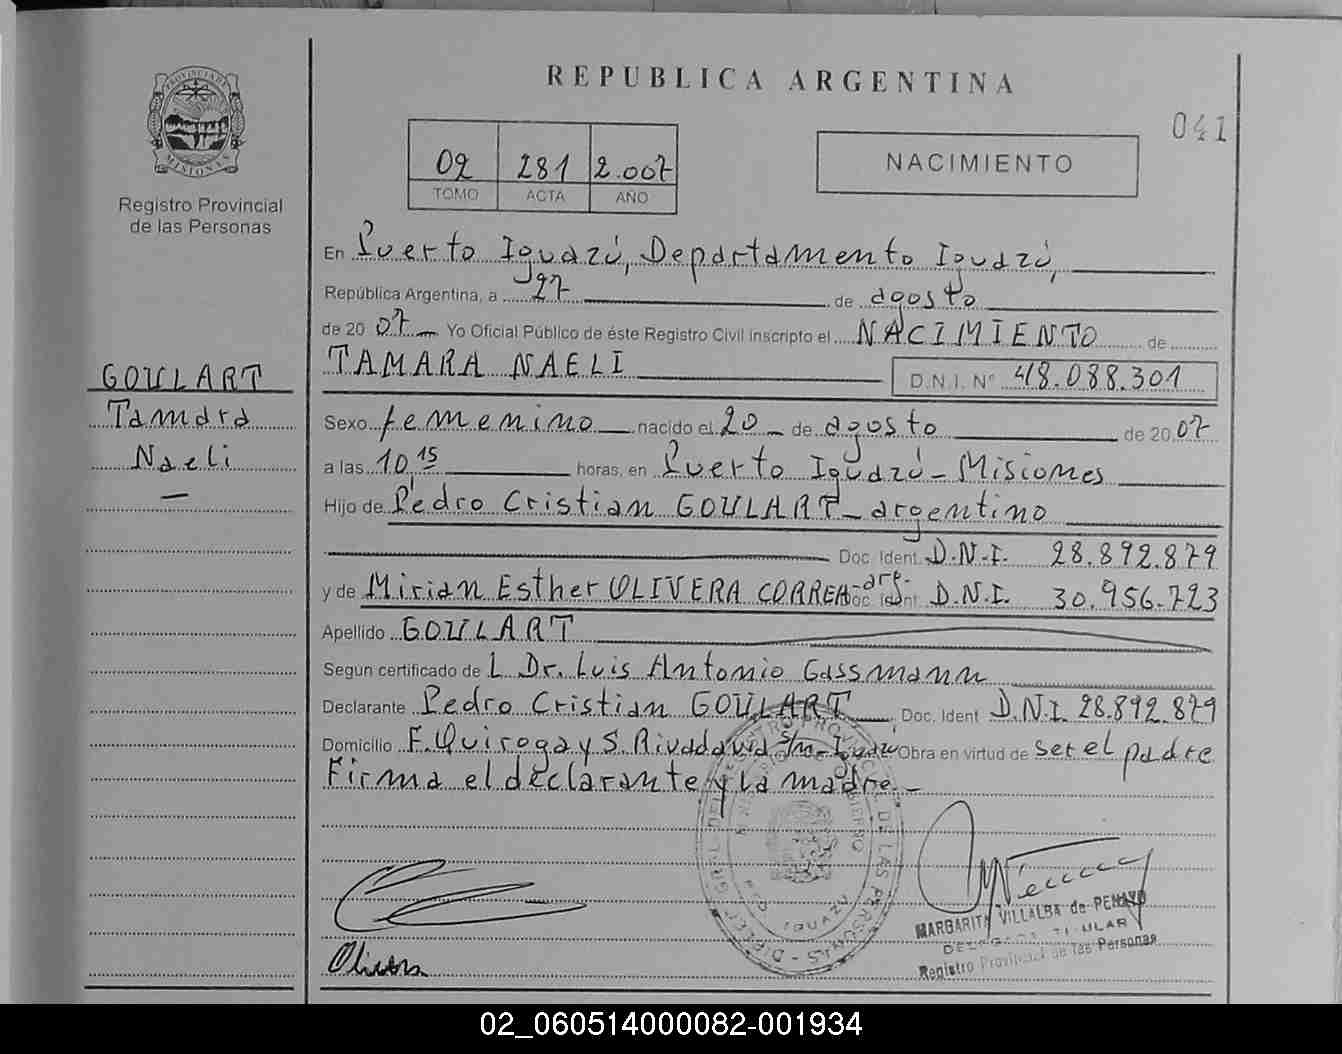 REPUBLICA ARGENTINA
041
PROVINCIA DE MISIONES
Registro Provincial
de las Personas
02 281 2.007
TOMO ACTA AÑO
NACIMIENTO
En Puerto Iguazú, Departamento Iguazú,
República Argentina, a 27 de agosto
de 20 07 Yo Oficial Público de éste Registro Civil inscripto el NACIMIENTO de
TAMARA NAELI D.N.I. Nº 48.088.301
GOULART
Tamara
Naeli
Sexo femenino nacido el 20 de agosto de 20 07
a las 10 15 horas, en Puerto Iguazú - Misiones
Hijo de Pedro Cristian GOULART - argentino
Doc. Ident. D.N.I. 28.892.879
y de Mirian Esther OLIVERA CORREA - arg. Doc. Ident. D.N.I. 30.956.723
Apellido GOULART
Segun certificado de L Dr. Luis Antonio Gassmann
Declarante Pedro Cristian GOULART Doc. Ident D.N.I. 28.892.879
Domicilio F. Quiroga y S. Rivadavia S/n - Iguazú Obra en virtud de ser el padre
Firma el declarante y la madre.-
Olivera
MARGARITA VILLALBA de PENAYO
Registro Provincial de las Personas
02_060514000082-001934